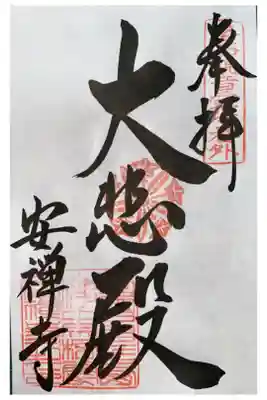 奉拝
大悲殿
安禅寺